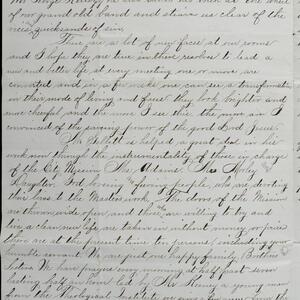 of our grand old band and steam us clear of the
quicksands of sin.
There are a lot of new faces at our rooms
and I hope they are in their resolve to lead a
new and better life at every meeting one or more are
converted and in a few weeks one can see a transformation
in their mode of living and faces they look brighter and
more cheerful and the more I see this the more am I
convinced of the saving power of the good Lord Jesus.
is helped a great deal in his
work now through the instrumentality of those in charge
of the City Mission The Misses
Daughter. God loving people, who are devoting
their lives to the Masters work. The doors of the Mission
are thrown wide open, and those who are willing to try and
live a clean new life are taken in without money or price
there are at the present time ten persons (including your
humble servant. We are just one happy family, Brothers
We have prayers every morning at half past seven
lasting half an hour led by Mr. a young man
from the Theological Institute